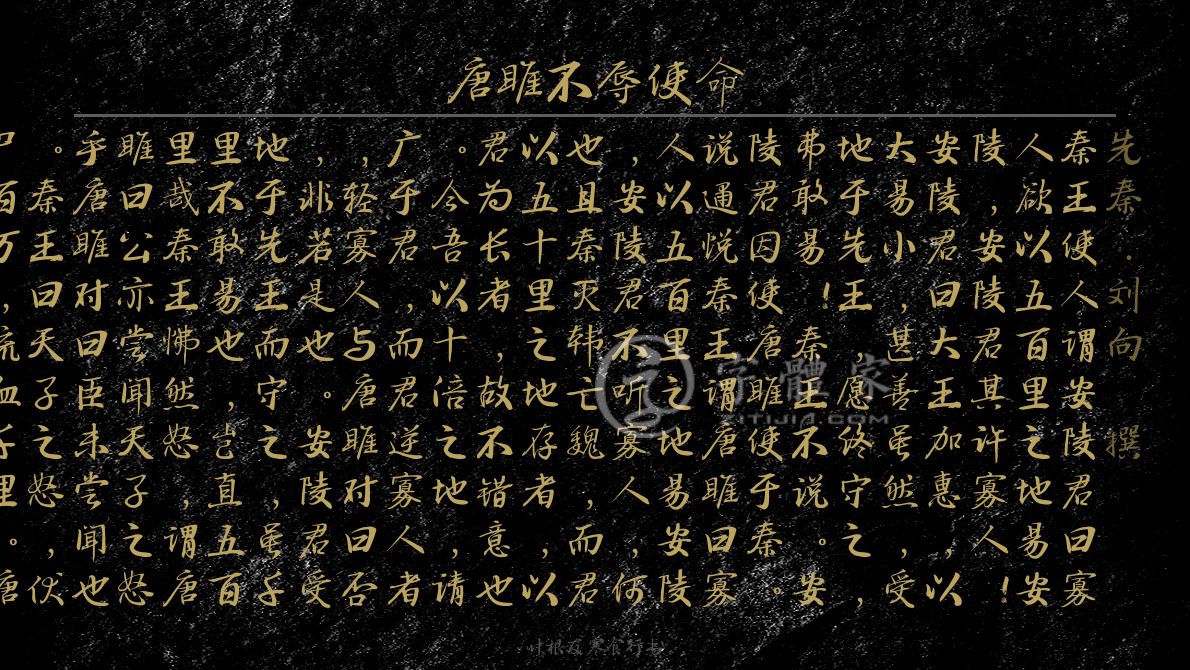 唐雎不辱使命
先秦·刘向·撰
秦王使人谓安陵君曰寡
人欲以五百里之地易安
陵，安陵君其许寡人！
安陵君曰大王加惠，以
大易小，甚善虽然，受
地于先王，愿终守之，
弗敢易！秦王不说。安
陵君因使唐雎使于秦。
说通悦秦王谓唐雎曰寡
人以五百里之地易安陵
，安陵君不听寡人，何
也且秦灭韩亡魏，而君
以五十里之地存者，以
君为长者，故不错意也
。今吾以十倍之地，请
广于君，而君逆寡人者
，轻寡人与唐雎对曰否
，非若是也。安陵君受
地于先王而守之，虽千
里不敢易也，岂直五百
里哉秦王怫然怒，谓唐
雎曰公亦尝闻天子之怒
乎唐雎对曰臣未尝闻也
。秦王曰天子之怒，伏
尸百万，流血千里。唐
字體家
ZITIJIA.COM
叶根友寒食行书